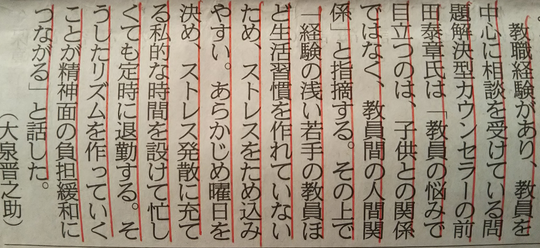 教職経験があり、教員を
中心に相談を受けている問
題解決型カウンセラーの前
田泰章氏は「教員の悩みで
目立つのは、子供との関係
ではなく、教員間の人間関
係」と指摘する。その上で
「経験の浅い若手の教員ほ
ど生活習慣を作れていない
ため、ストレスをため込み
やすい。あらかじめ曜日を
決め、ストレス発散に充て
る私的な時間を設けて忙し
くても定時に退勤する。そ
うしたリズムを作っていく
ことが精神面の負担緩和に
つながる」と話した。
（大泉晋之助）